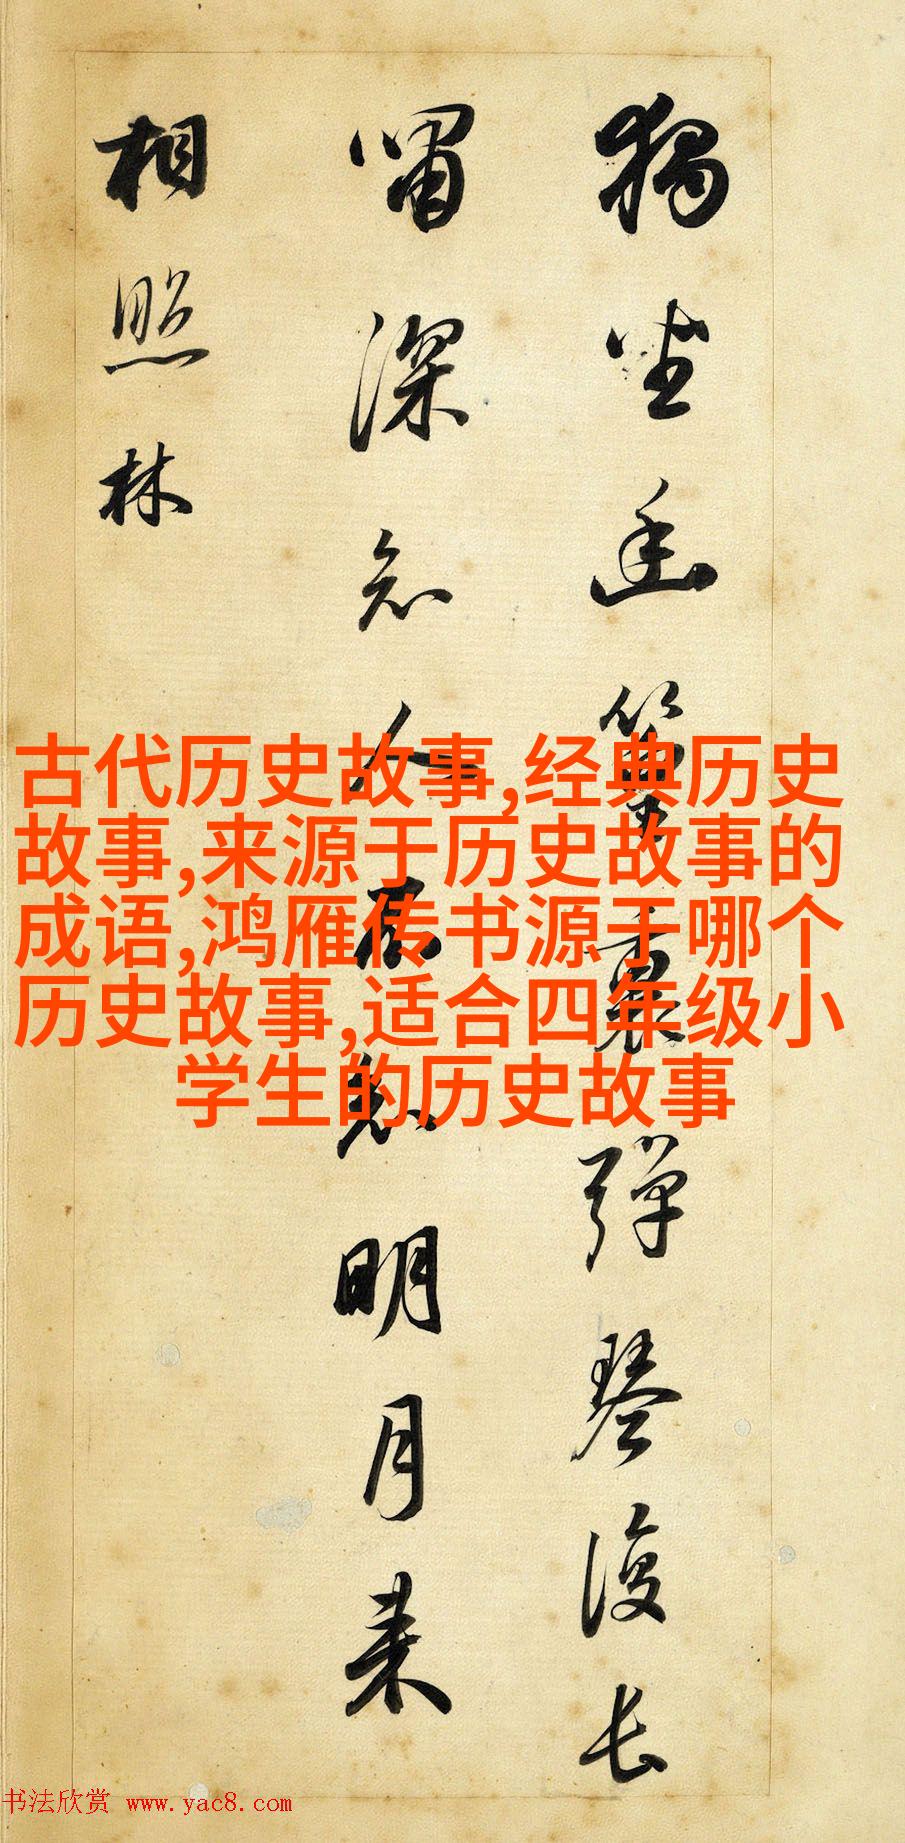 獨坐幽篁裏彈琴復長
嘯深人不明月來
相照林
古代历史故事,经典历史
故事,来源于历史故事的
成语,鸿雁传书源于哪个
历史故事,适合四年级小
学生的历史故事
书法欣赏 www.yac8.com